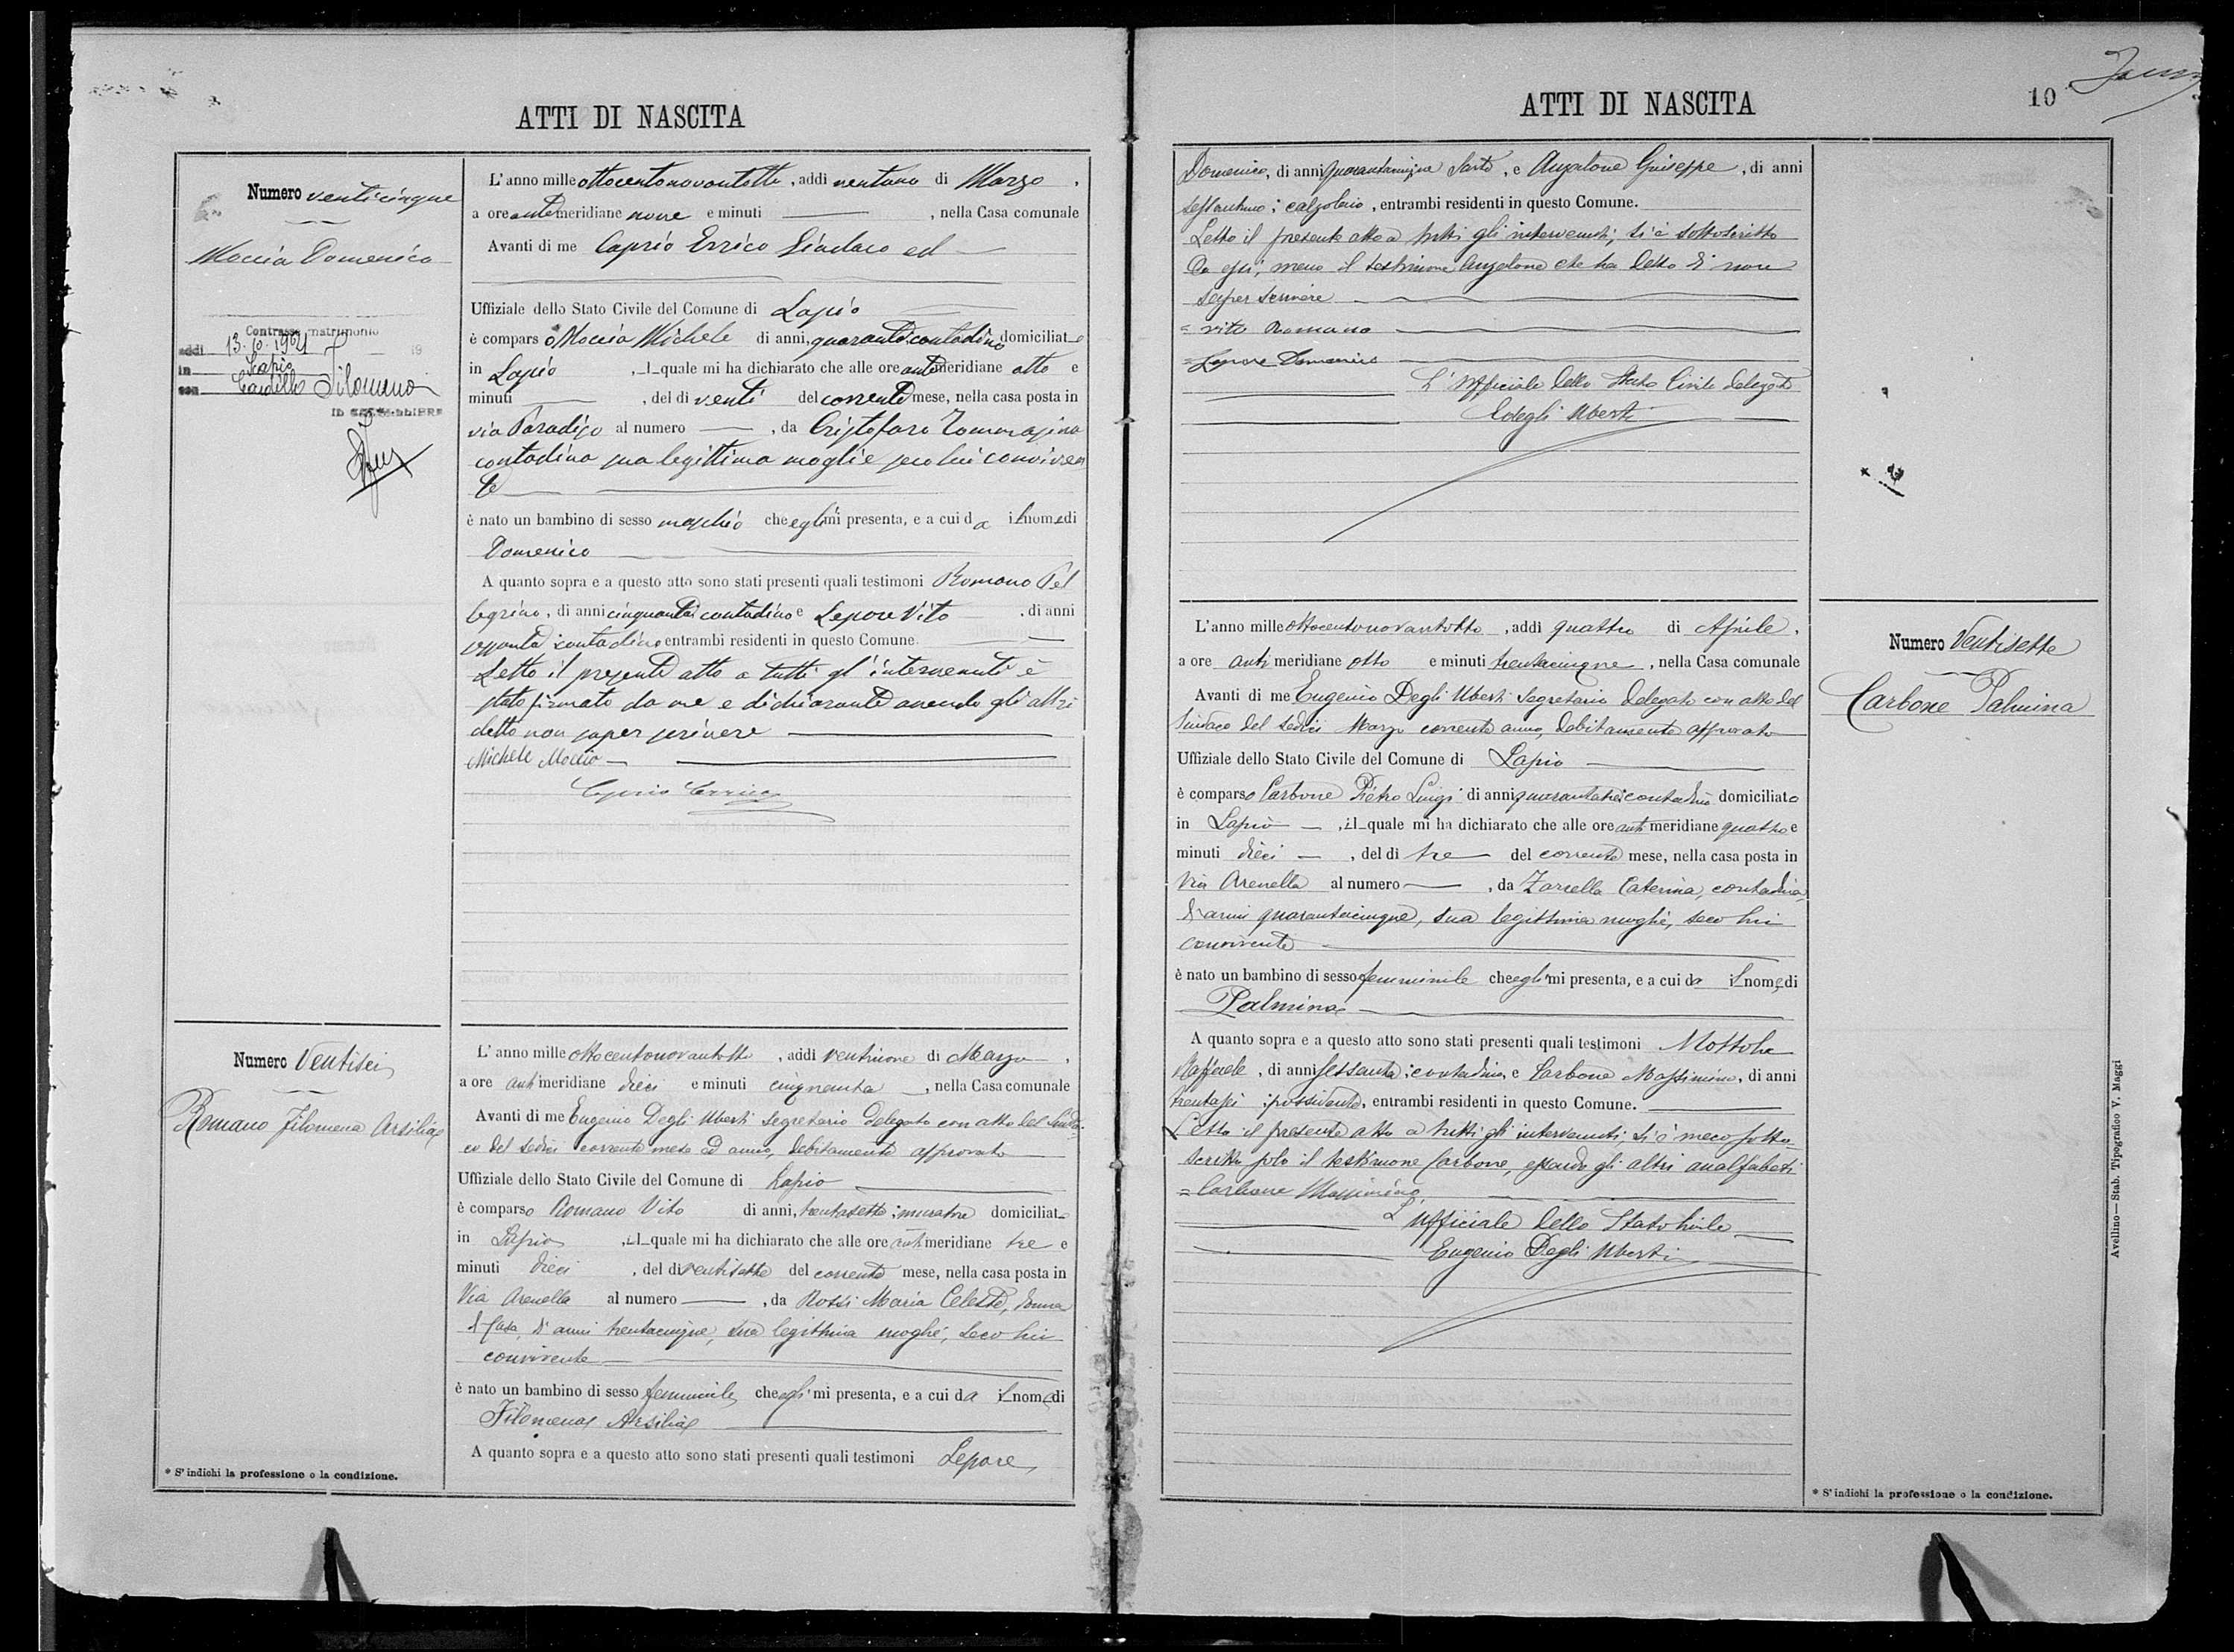 ATTI DI NASCITA
Numero venticinque
Moccia Domenico
Contrasse matrimonio
addì 13.10.1921
in Lapio
con Filomena
L'anno mille ottocentonovantotto, addì ventuno di Marzo,
a ore antimeridiane nove e minuti , nella Casa comunale
Avanti di me Caprio Errico Sindaco ed
Uffiziale dello Stato Civile del Comune di Lapio
è comparso Moccia Michele di anni, quaranta contadino domiciliato
in Lapio , il quale mi ha dichiarato che alle ore antimeridiane otto e
minuti , del dì venti del corrente mese, nella casa posta in
via Paradiso al numero , da Cristofaro Tommasina
contadina sua legittima moglie seco lui conviven
te
è nato un bambino di sesso maschio che egli mi presenta, e a cui da il nome di
Domenico
A quanto sopra e a questo atto sono stati presenti quali testimoni Romano Pel
legrino, di anni cinquanta contadino e Lepore Vito , di anni
sessanta contadino entrambi residenti in questo Comune.
Letto il presente atto a tutti gl'intervenuti è
stato firmato da me e dichiarante avendo gli altri
detto non saper scrivere
Michele Moccio
Caprio Errico
Numero Ventisei
Romano Filomena Arsilia
L'anno mille ottocentonovantotto, addì ventinove di Marzo,
a ore antimeridiane dieci e minuti cinquanta, nella Casa comunale
Avanti di me Eugenio Degli Uberti Segretario delegato con atto del Sinda-
co del sedici corrente mese ed anno, debitamente approvato
Uffiziale dello Stato Civile del Comune di Lapio
è comparso Romano Vito di anni, trentasette; muratore domiciliato
in Lapio , il quale mi ha dichiarato che alle ore antimeridiane tre e
minuti dieci , del dì ventisette del corrente mese, nella casa posta in
Via Arenella al numero , da Rossi Maria Celeste, donna
di casa, di anni trentacinque, sua legittima moglie, seco lui
convivente
è nato un bambino di sesso femminile che egli mi presenta, e a cui da il nome di
Filomena Arsilia
A quanto sopra e a questo atto sono stati presenti quali testimoni Lepore
* S'indichi la professione o la condizione.
ATTI DI NASCITA
10
Domenico, di anni quarantacinque Sarto, e Anzalone Giuseppe, di anni
sessantuno; calzolaio, entrambi residenti in questo Comune.
Letto il presente atto a tutti gli intervenuti, si è sottoscritto
da essi, meno il testimone Anzalone che ha detto di non
saper scrivere
= Vito Romano
= Lepore Domenico
L'Ufficiale dello Stato Civile delegato
E degli Uberti
L'anno mille ottocentonovantotto, addì quattro di Aprile,
a ore antimeridiane otto e minuti trentacinque, nella Casa comunale
Avanti di me Eugenio Degli Uberti Segretario delegato con atto del
Sindaco del sedici Marzo corrente anno, debitamente approvato
Uffiziale dello Stato Civile del Comune di Lapio
è comparso Carbone Pietro Luigi di anni quarantatre; contadino domiciliato
in Lapio , il quale mi ha dichiarato che alle ore antimeridiane quattro e
minuti dieci , del dì tre del corrente mese, nella casa posta in
Via Arenella al numero , da Zarrella Caterina, contadina,
di anni quarantacinque, sua legittima moglie, seco lui
convivente
è nato un bambino di sesso femminile che egli mi presenta, e a cui da il nome di
Palmina
A quanto sopra e a questo atto sono stati presenti quali testimoni Mottola
Raffaele, di anni sessanta; contadino, e Carbone Massimino, di anni
trentasei; possidente, entrambi residenti in questo Comune.
Letto il presente atto a tutti gli intervenuti, si è meco sotto-
scritto solo il testimone Carbone, essendo gli altri analfabeti
= Carbone Massimino
L'Ufficiale dello Stato Civile
Eugenio Degli Uberti
Numero Ventisette
Carbone Palmina
Avellino—Stab. Tipografico V. Maggi
* S'indichi la professione o la condizione.